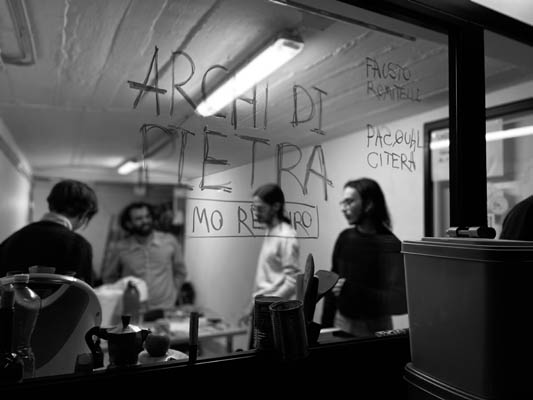 ARCHI DI
PIETRA
MO
FAUSTO
ROMITELLI
PASQUAL
CITERA